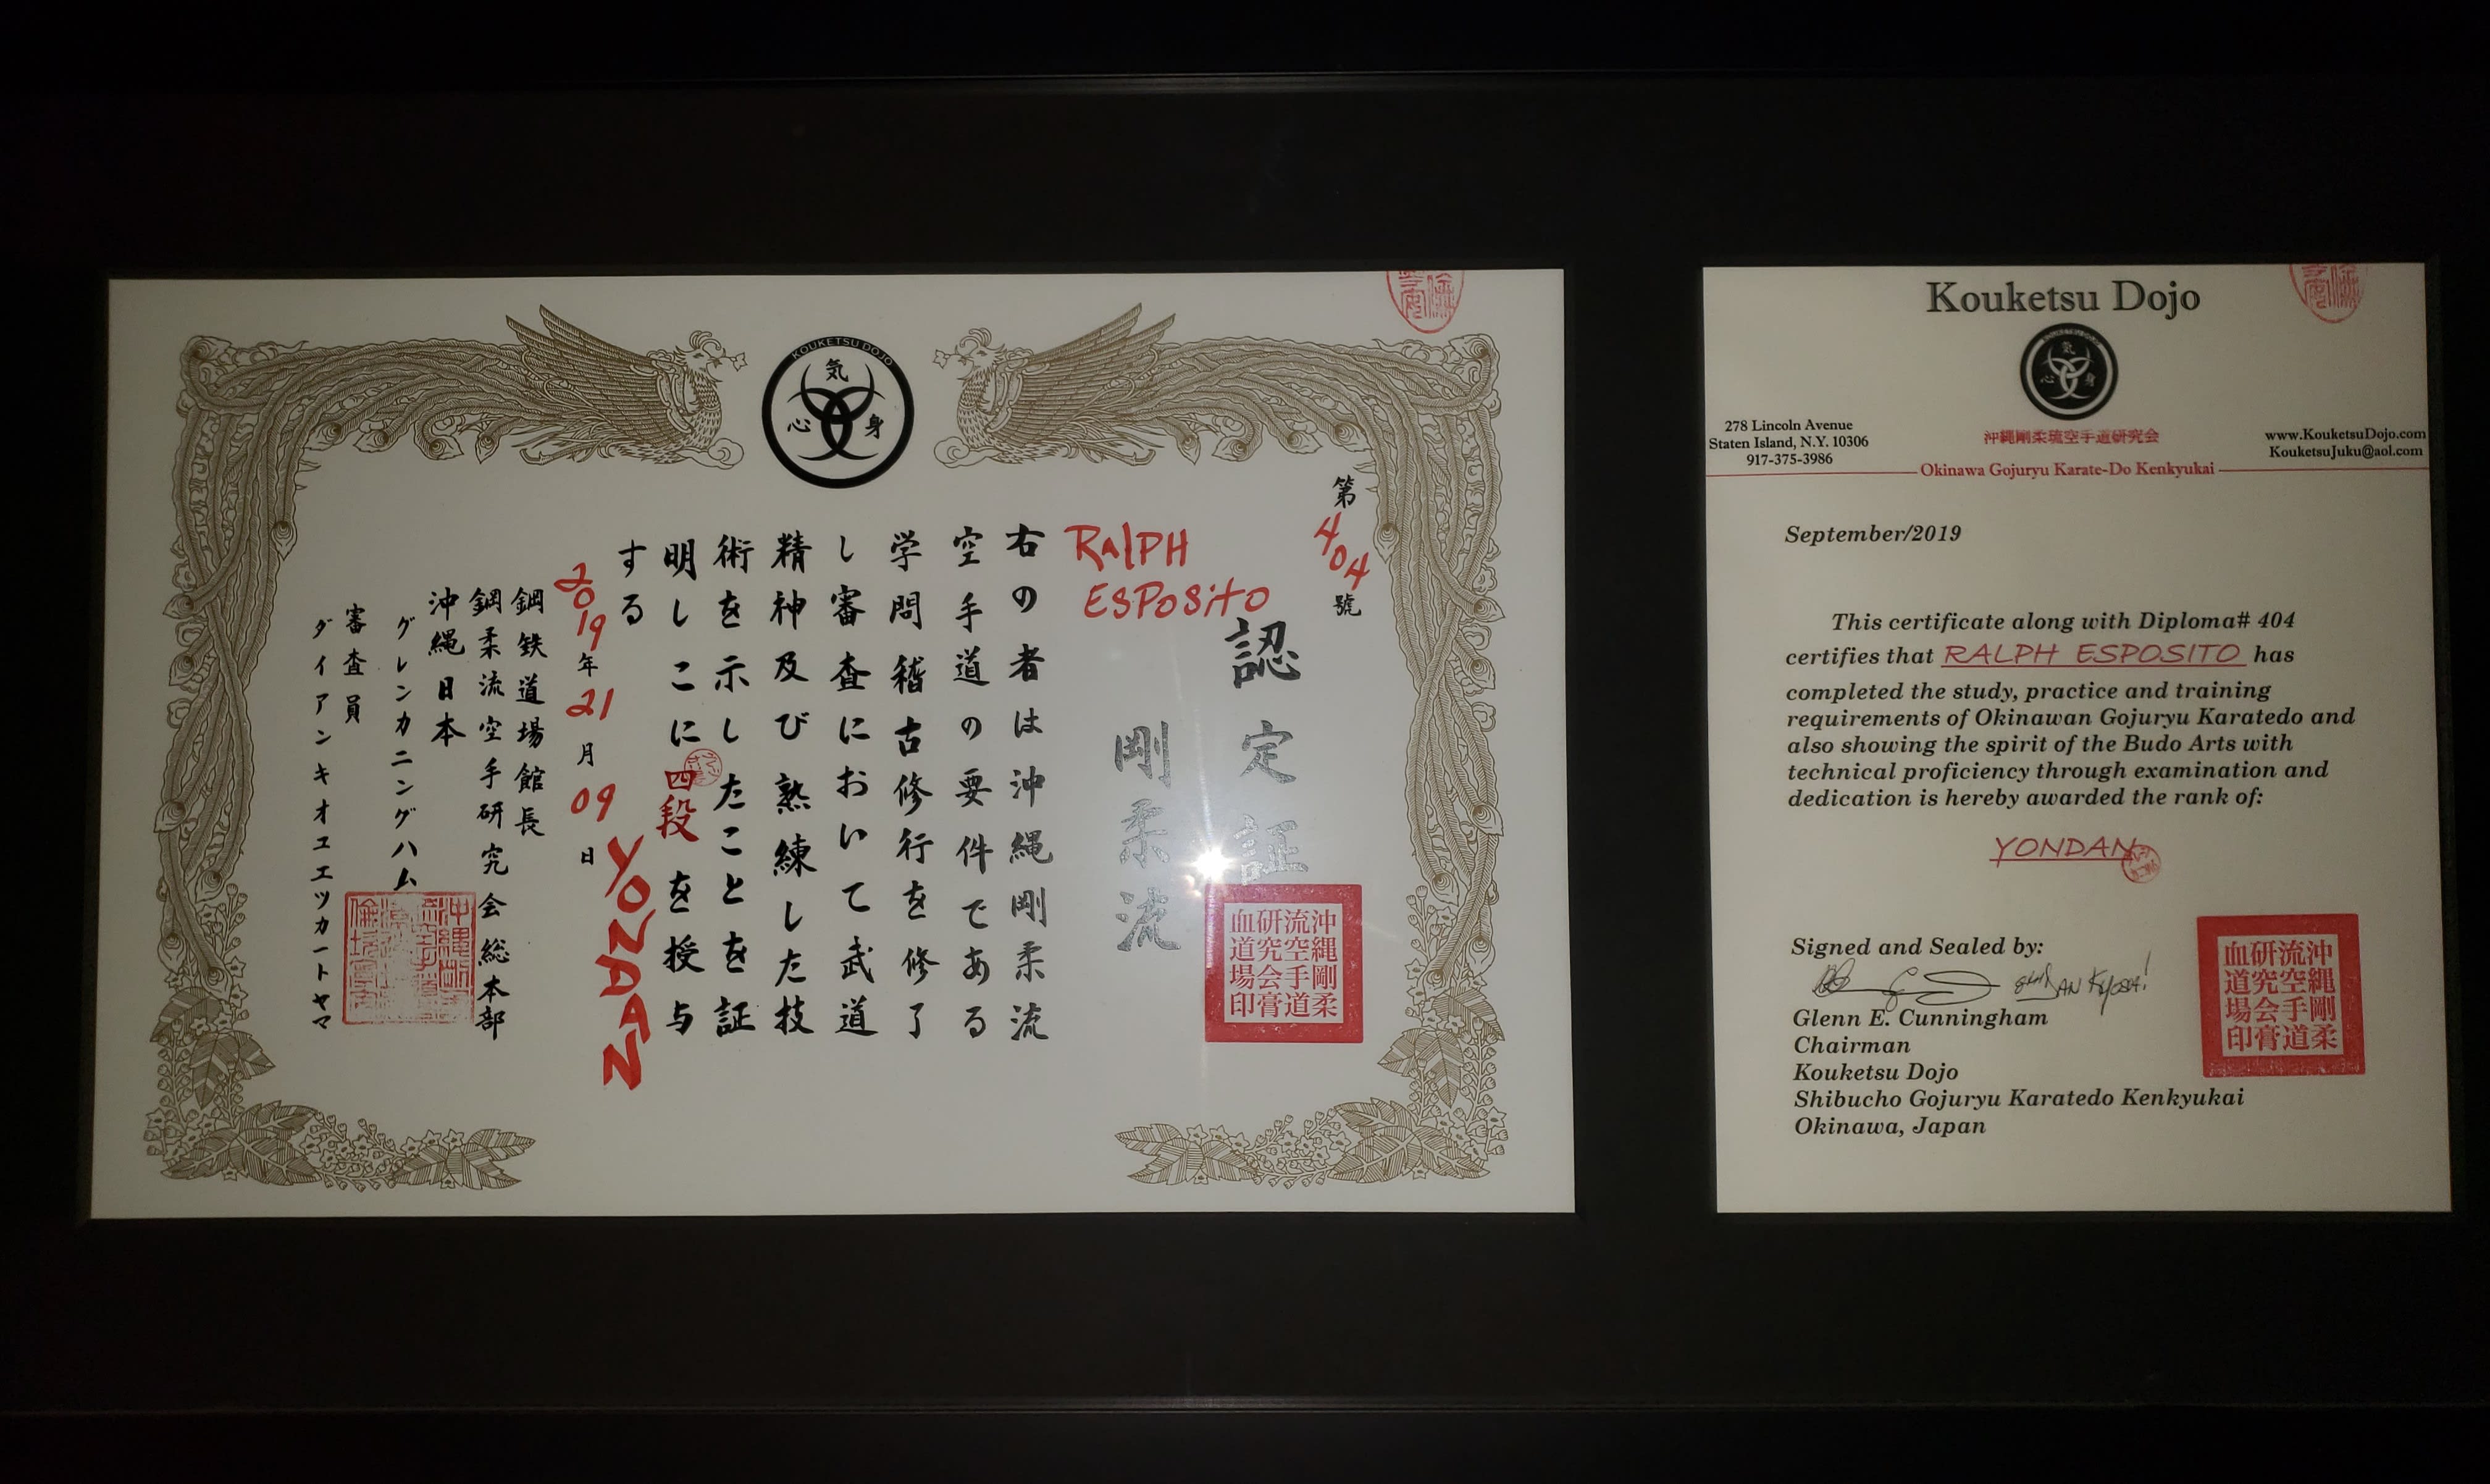 KOUKETSU DOJO
気
心 身
第404號
認定証
剛柔流
RALPH
ESPOSITO
沖縄剛柔
流空手道
研究会膏
血道場印
右の者は沖縄剛柔流
空手道の要件である
学問稽古修行を修了
し審査において武道
精神及び熟練した技
術を示したことを証
明しここに四段を授与
する
YONDAN
2019年21月09日
鋼鉄道場館長
鋼柔流空手研究会総本部
沖縄日本
グレンカニングハム
審査員
Kouketsu Dojo
気
心 身
278 Lincoln Avenue
Staten Island, N.Y. 10306
917-375-3986
沖縄剛柔琉空手道研究会
Okinawa Gojuryu Karate-Do Kenkyukai
www.KouketsuDojo.com
KouketsuJuku@aol.com
September/2019
This certificate along with Diploma# 404
certifies that RALPH ESPOSITO has
completed the study, practice and training
requirements of Okinawan Gojuryu Karatedo and
also showing the spirit of the Budo Arts with
technical proficiency through examination and
dedication is hereby awarded the rank of:
YONDAN
Signed and Sealed by:
Glenn E. Cunningham
Chairman
Kouketsu Dojo
Shibucho Gojuryu Karatedo Kenkyukai
Okinawa, Japan
沖縄剛柔
流空手道
研究会膏
血道場印